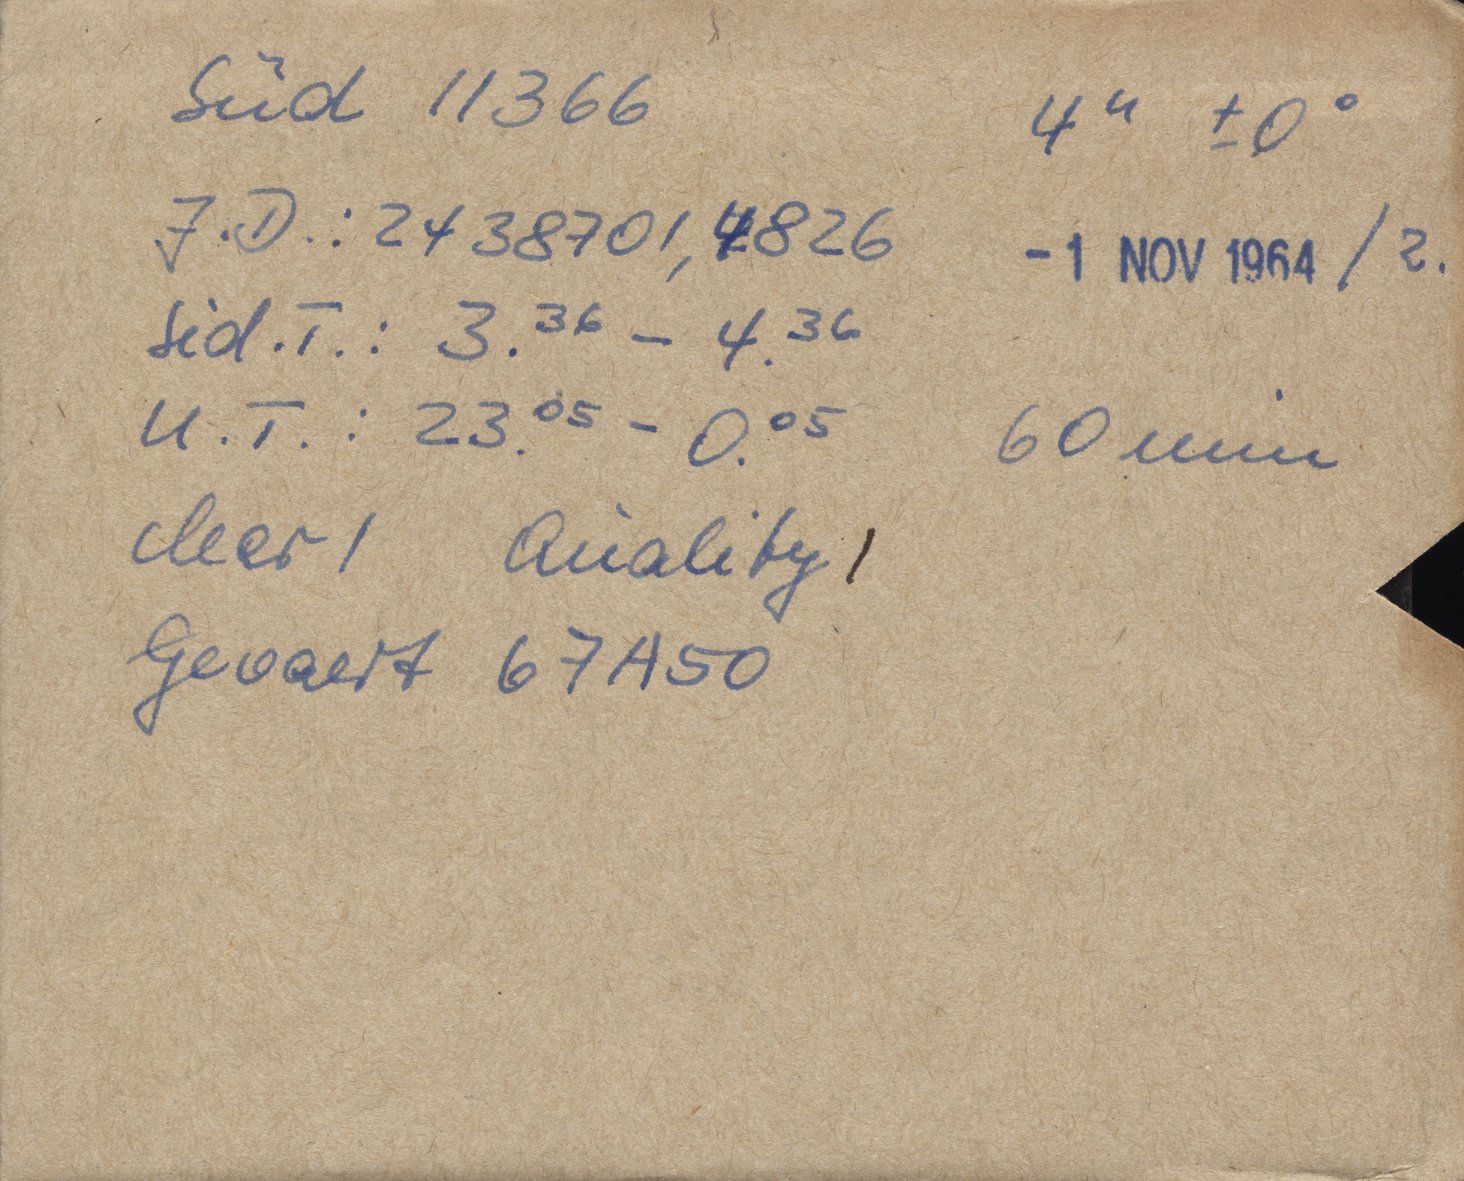 Süd 11366 4ʰ ±0°
J.D.: 2438701,4826 -1 NOV 1964 / 2.
Sid.T.: 3.³⁶ - 4.³⁶
U.T.: 23.⁰⁵ - 0.⁰⁵ 60 min
clear 1 Quality 1
Gevaert 67A50